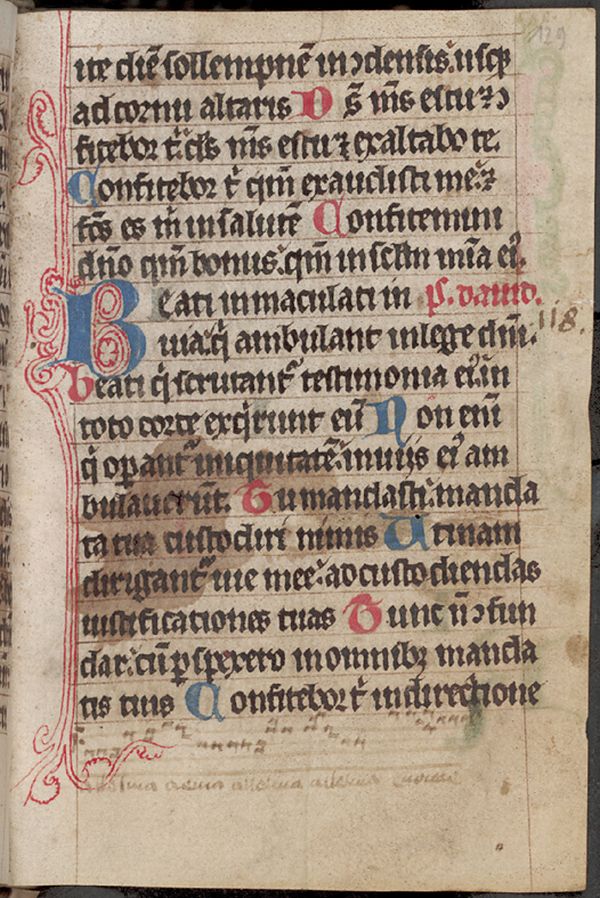 129
ite diē sollempnē in ꝯdensis. usqꝫ
ad cornu altaris Ds̄ ms̄ es tu ⁊ ꝯ
fitebor t̄. ds̄ ms̄ es tu ⁊ exaltabo te.
Confitebor t̄ qm̄ exaudisti me. ⁊
fc̄s es m̄ in salutē Confitemini
dn̄o qm̄ bonus. qm̄ in sc̄lm mīa eiꝰ.
Beati inmaculati in P. dauid.
uia. q̄ ambulant in lege dn̄i. 118.
Beati q̄ scrutantᷣ testimonia eiꝰ. in
toto corde exq̄runt eū Non enī
q̄ oꝑantᷣ iniquitatē. in uiis eiꝰ am
bulauerūt. Tu mandasti. manda
ta tua custodiri nimis Utinam
dirigantᷣ uie mee. ad custodiendas
iustificationes tuas Tunc n̄ ꝯfun
dar. cū ꝑspexero in omnibꝫ manda
tis tuis Confitebor t̄ in directione